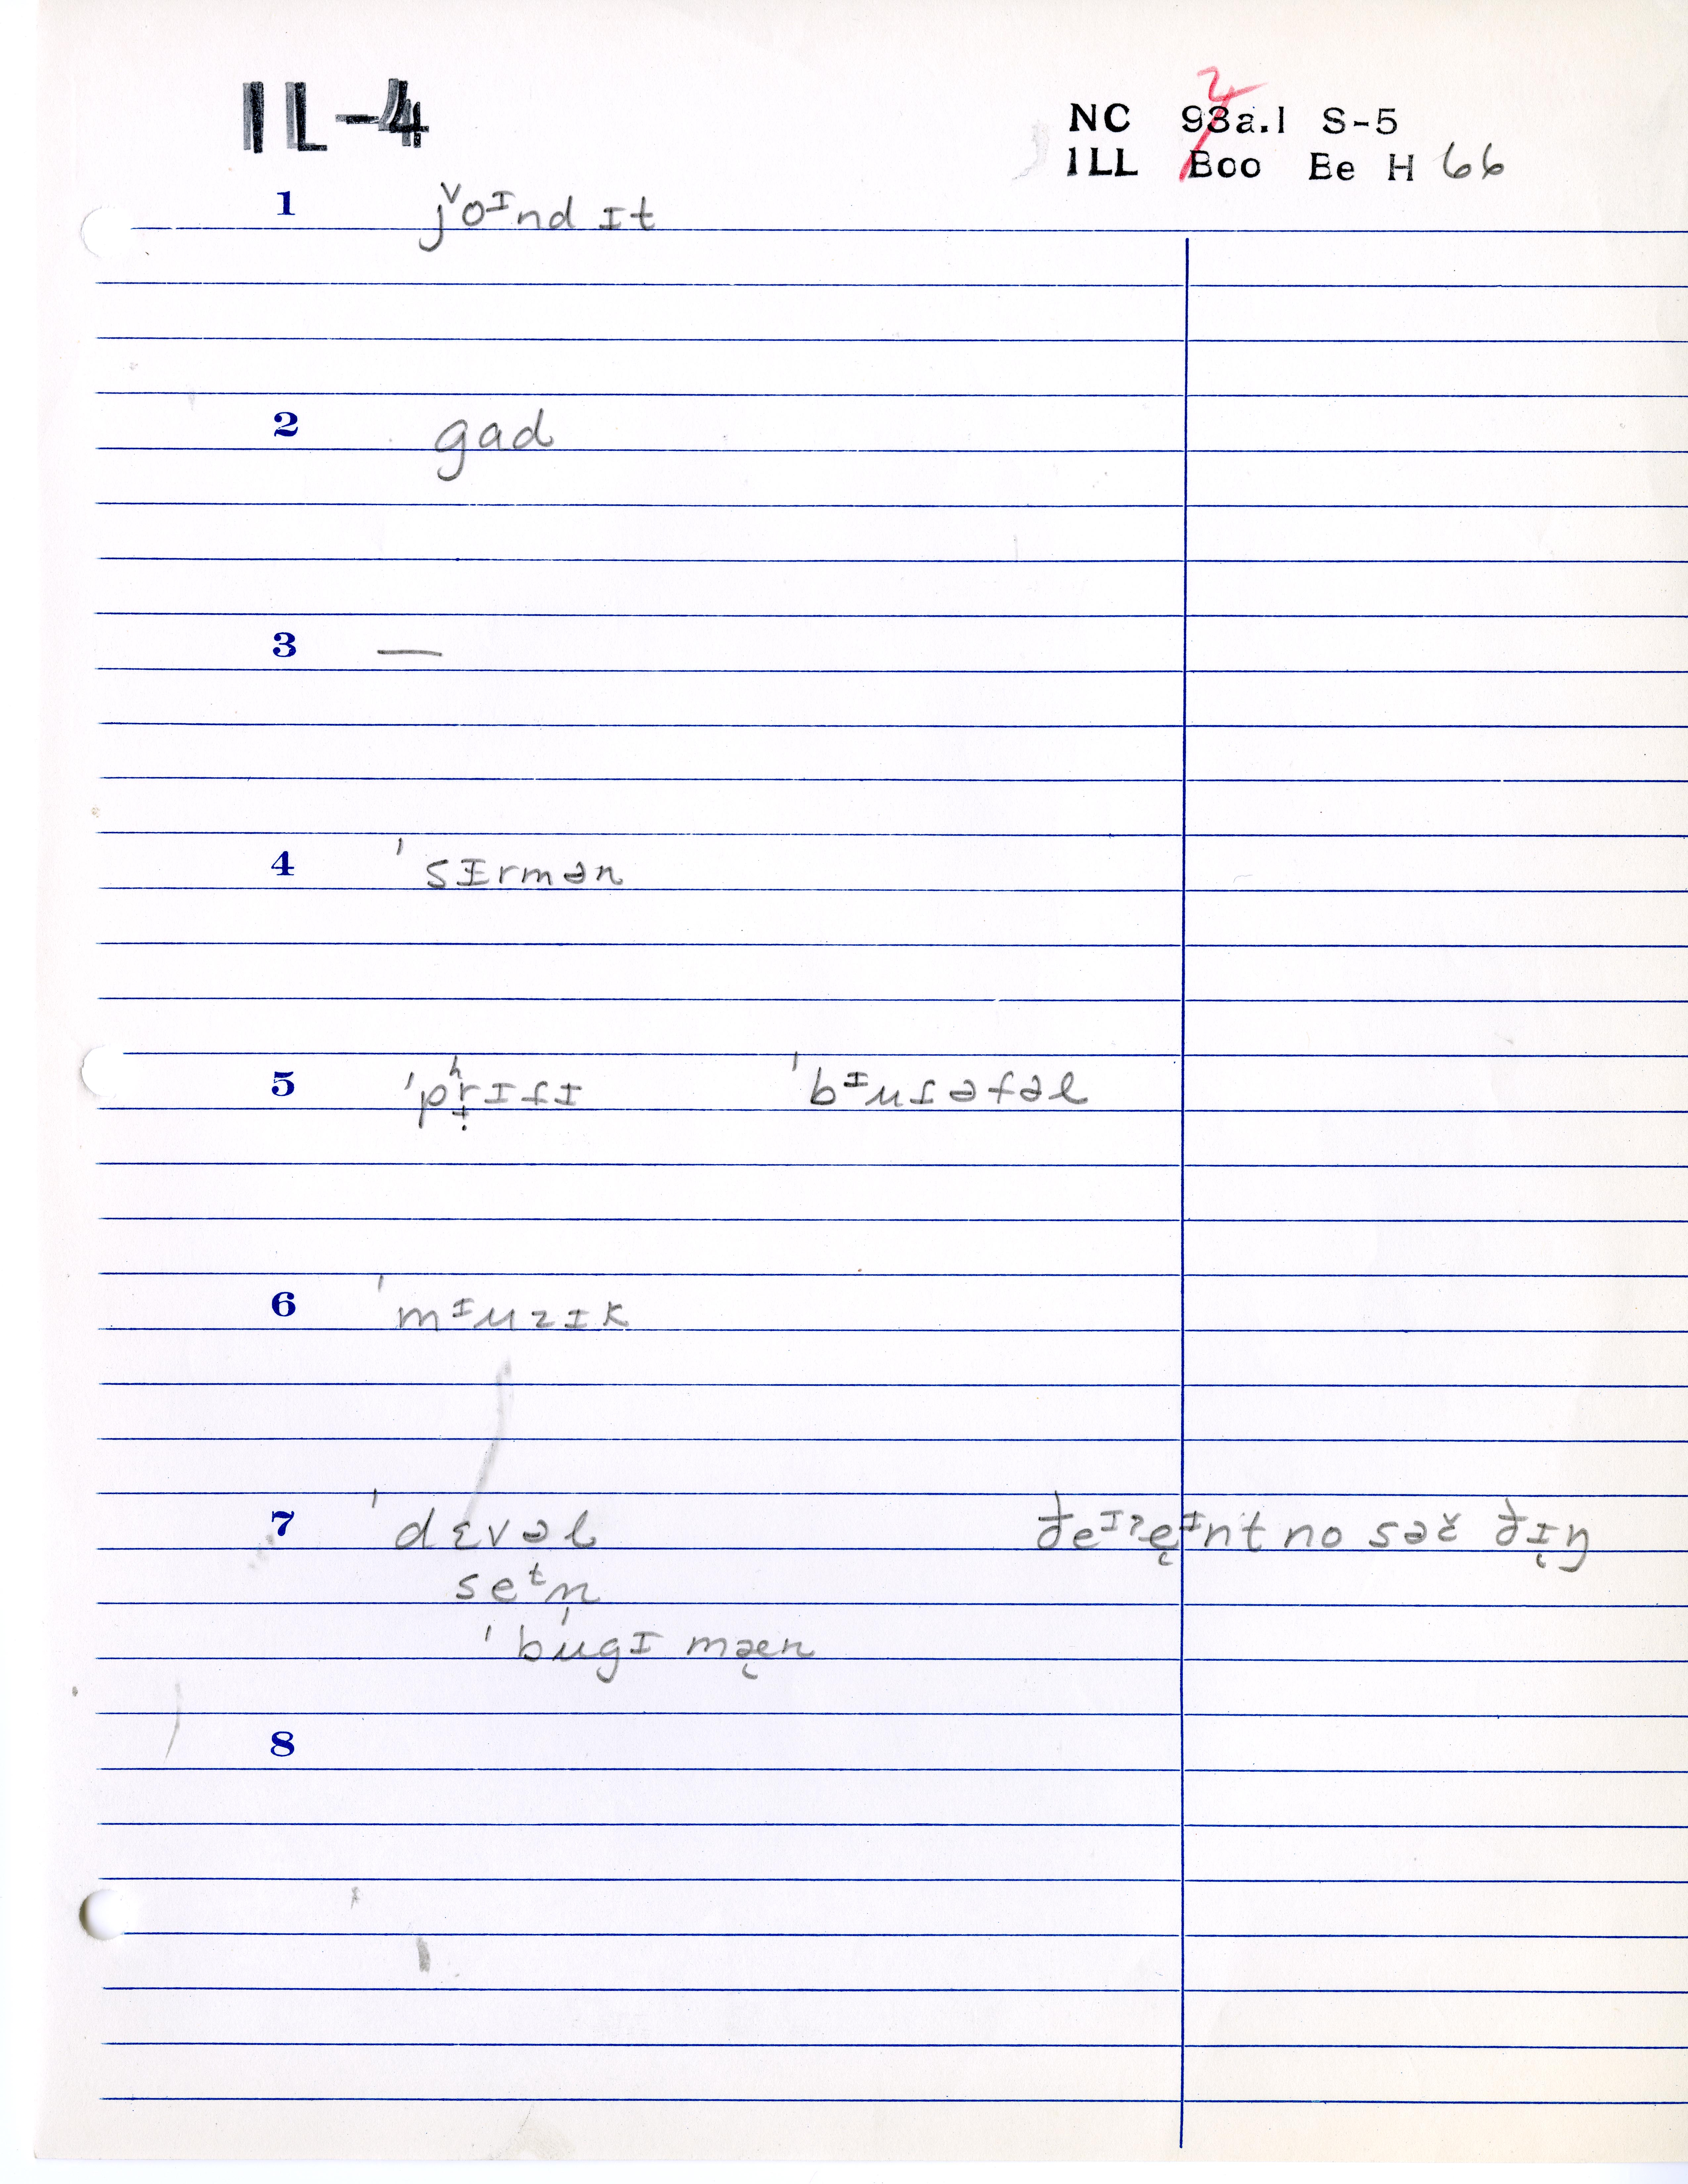 IL-4
NC 93a.1 S-5
2
ILL Boo Be H 66
1 ǰoᶦnd ɪt
2 gad
3 —
4 ˈsɪrmən
5 ˈpʰr̭ɪtɪ ˈbᶦutəfəl
6 ˈmᶦuzɪk
7 ˈdɛvəl ðeᶦˀe̜ᶦnt no səč ðɪ̜ŋ
seᵗn̩
ˈbugɪ mæ̜n
8